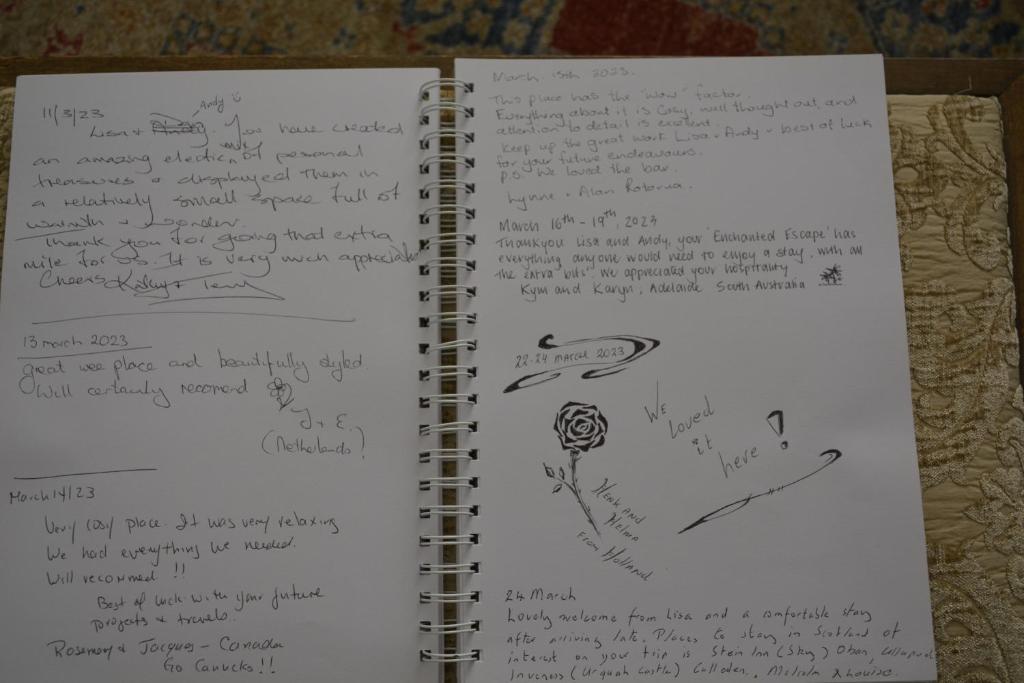 11/3/23
Andy
Lisa + You have created
an amazing of personal
treasures & displayed them in
a relatively small space full of
warmth & wonder.
Thank you for going that extra
mile for us. It is very much
Cheers Kathy +
13 march 2023
great wee place and beautifully styled.
Will certainly recomend
J + E.
(Netherlands)
March 14/23
Very cosy place. It was very relaxing
We had everything we needed.
Will recommed !!
Best of luck with your future
projects & travels.
Rosemary & Jacques - Canada
Go Canucks!!
March 15th 2023.
This place has the "wow" factor.
Everything about it is cosy, well thought out, and
attention to detail is
Keep up the great work Lisa + Andy - best of luck
for your future endeavours.
p.s. We loved the bar.
Lynne + Alan Rotorua
March 16th - 19th, 2023
Thankyou Lisa and Andy, your 'Enchanted Escape' has
everything anyone would need to enjoy a stay, with all
the 'extra bits'. We appreciated your hospitality
Kym and Karyn, Adelaide South Australia
22-24 march 2023
We
Loved
it
here !
Henk and
Helma
From Holland
24 March
Lovely welcome from Lisa and a comfortable stay
after arriving late. Places to stay in Scotland of
interest on your trip is Stein Inn (Skye) Oban,
Inverness (Urquah Castle) Culloden. Malcolm & Louise.